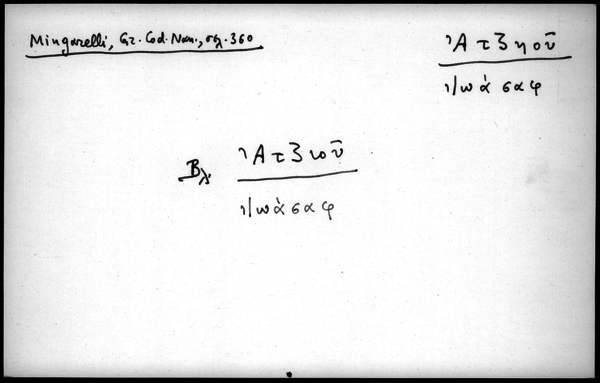 Mingarelli, Gr. Cod. Nan., σελ. 360
Ἀτζηοῦ
Ἰωάσαφ
Βλ. Ἀτζιοῦ
Ἰωάσαφ